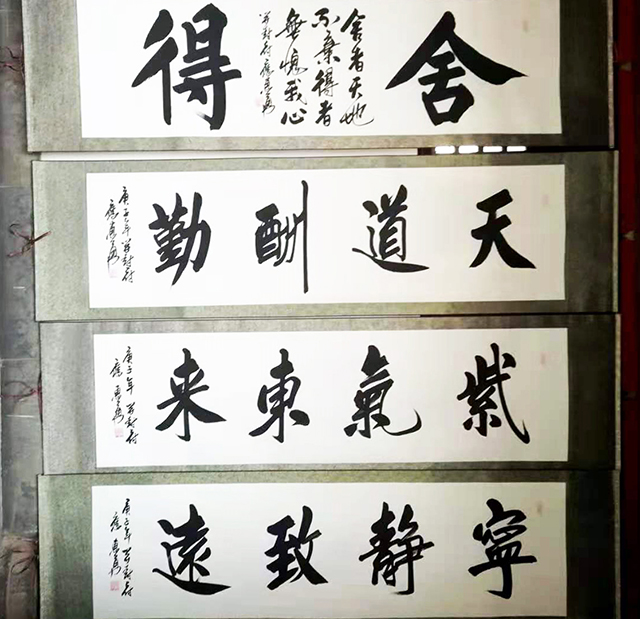 舍
舍者天地
不棄得者
無愧我心
得
天道酬勤
庚子年
紫氣東来
庚子年
寧靜致遠
庚子年